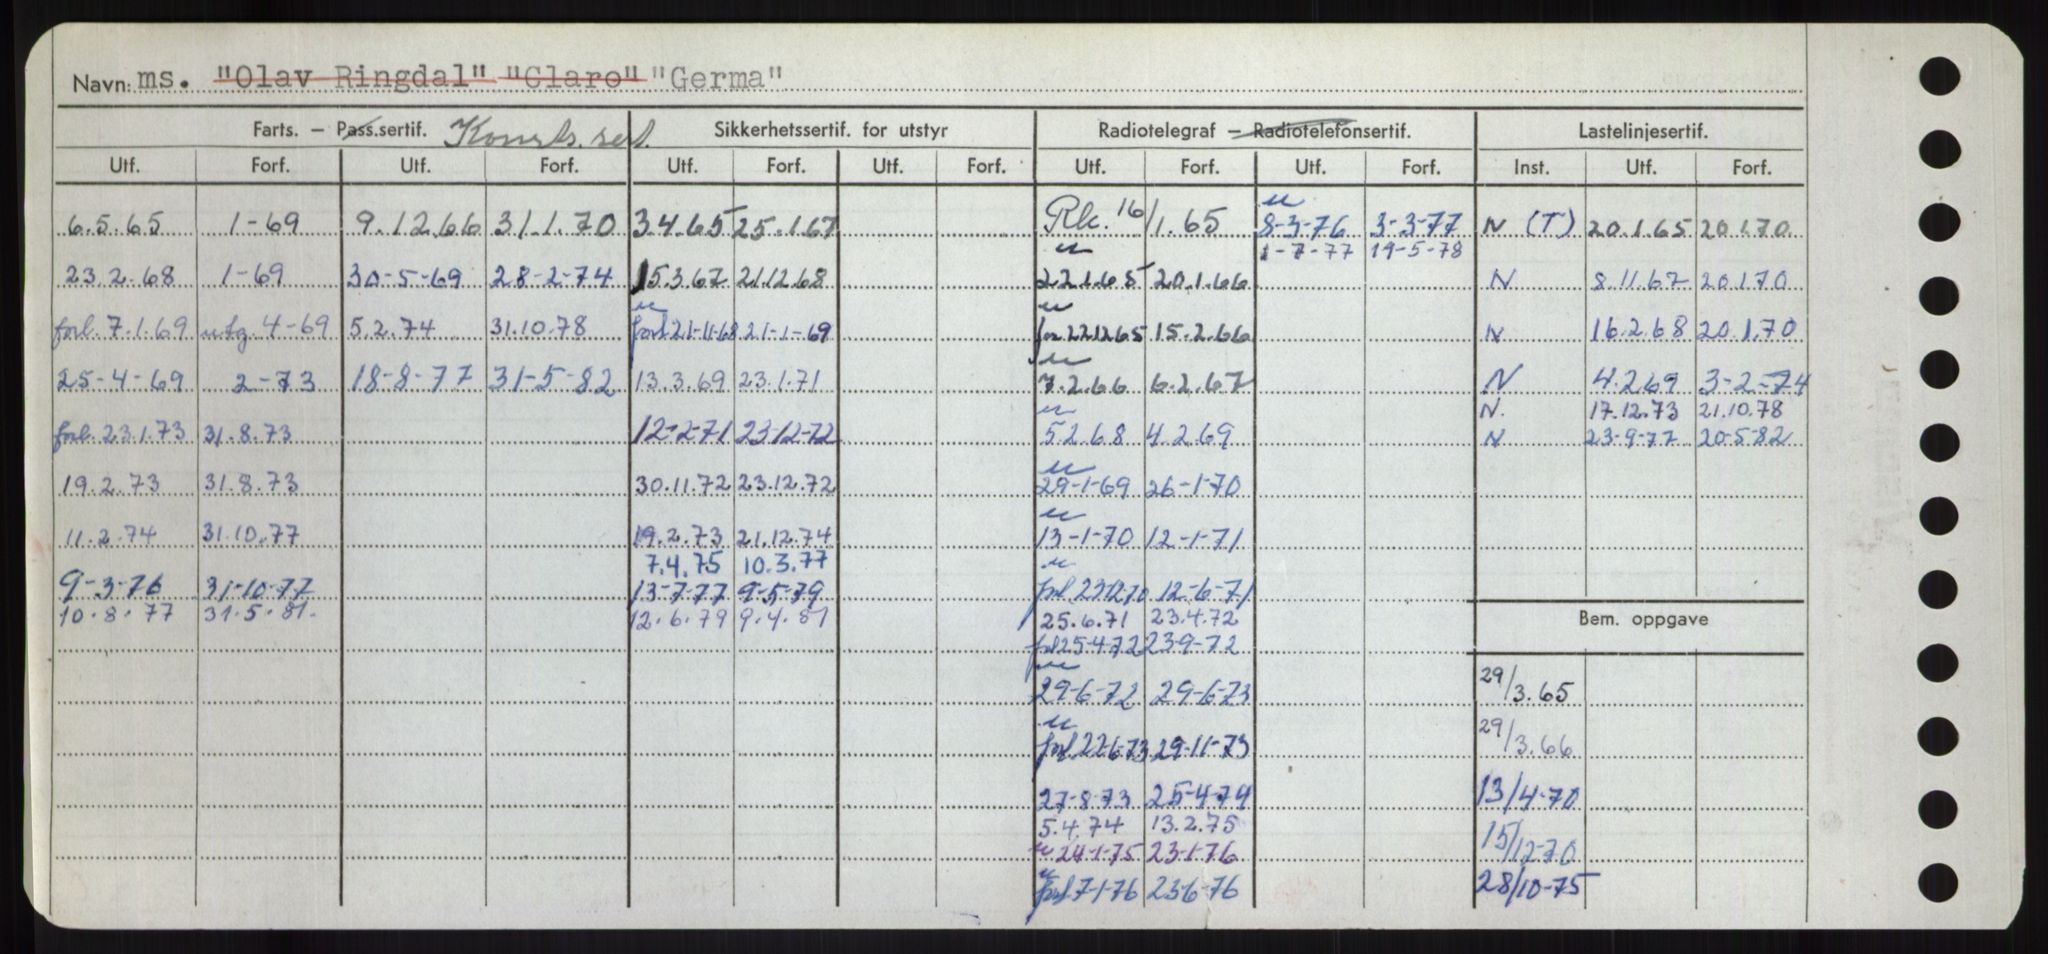 Navn: ms. "Olav Ringdal" "Claro" "Germa"
Farts. – Pass.sertif. Konstr. sert. Sikkerhetssertif. for utstyr Radiotelegraf – Radiotelefonsertif. Lastelinjesertif.
Utf. Forf. Utf. Forf. Utf. Forf. Utf. Forf. Utf. Forf. Utf. Forf. Inst. Utf. Forf.
6.5.65 1-69 9.12.66 31.1.70 3.4.65 25.1.67 Rk. 16/1.65 u 8-3-76 3-3-77 N (T) 20.1.65 20.1.70
1-7-77 19-5-78
23.2.68 1-69 30-5-69 28-2-74 15.3.67 21.12.68 u 22.1.65 20.1.66 N 8.11.67 20.1.70
forl. 7.1.69 utg. 4-69 5.2.74 31.10.78 u forl 21-11-68 21-1-69 u for 22.12.65 15.2.66 N 16.2.68 20.1.70
25-4-69 2-73 18-8-77 31-5-82 13.3.69 23.1.71 u 7.2.66 6.2.67 N 4.2.69 3-2-74
N. 17.12.73 21.10.78
forl. 23.1.73 31.8.73 12-2-71 23-12-72 u 5.2.68 4.2.69 N 23-9-77 20-5-82
19.2.73 31.8.73 30.11.72 23.12.72 u 29-1-69 26-1-70
11.2.74 31.10.77 19.2.73 21.12.74 u 13-1-70 12-1-71
7.4.75 10.3.77
9-3-76 31-10-77 13-7-77 9-5-79 u forl 23.12.70 12-6-71
10.8.77 31.5.81. 12.6.79 9.4.81 25.6.71 23.4.72
Bem. oppgave
forl 25-4-72 23-9-72
u 29-6-72 29-6-73 29/3.65
u forl. 22-6-73 29-11-73 29/3.66
27-8-73 25-4-74 13/4-70
5.4.74 13.2.75
u 24-1-75 23-1-76 15/12-70
u forl 7-1-76 23-6-76 28/10-75